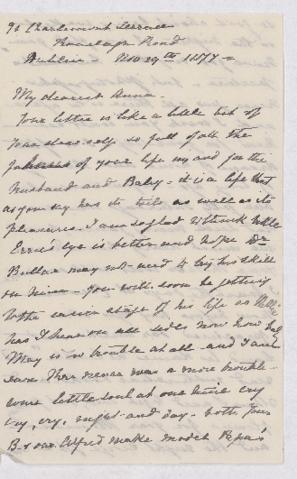 90 Charlemont Terrace
Road
Dublin - Nov 29th 1877 -
My dearest Anna -
Your letter is like a little bit of
Your dear self so full of all the
of your life my and for the
Husband and Baby - it is a life that
as you say has its toils as well as its
pleasures. I am so glad to think little
Ernie's eye is better and hope Dr
Buller may not need to try his skill
on him - You will soon be getting
to the easier stage of his life as Willie
has I hear on all sides now how
May is no trouble at all - and I am
sure there never was a more trouble-
some little soul at one time cry
cry, cry, night and day - both your
B. & our Alfred make model Papa's